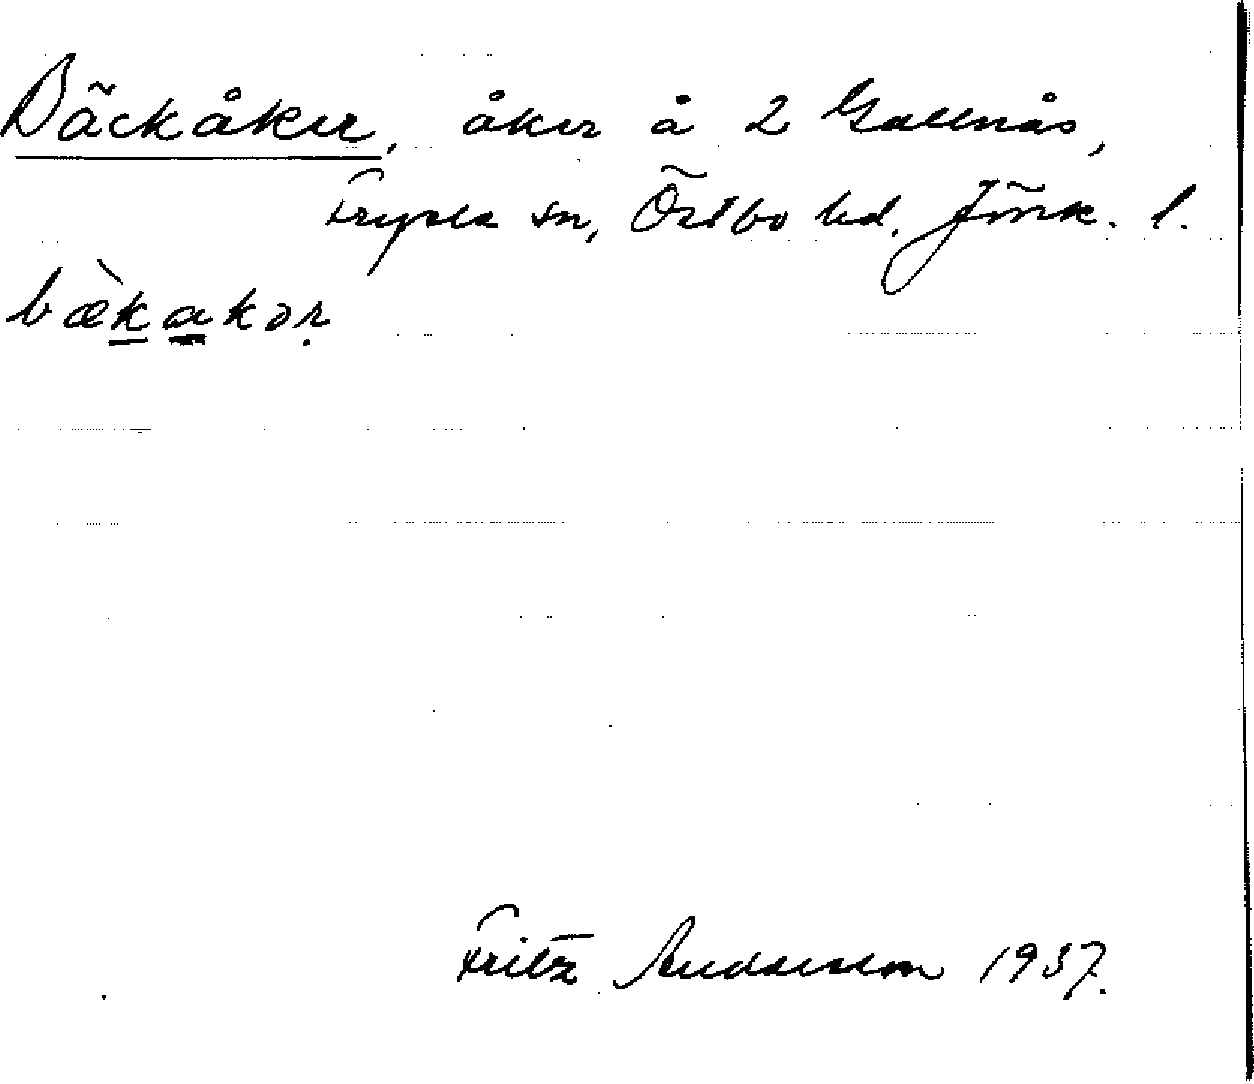 Bäckåker, åker å 2 Gallnås,
Fryele sn, Östbo hd. Jönk. l.
bæ̀kakər
Fritz Andersson 1937.